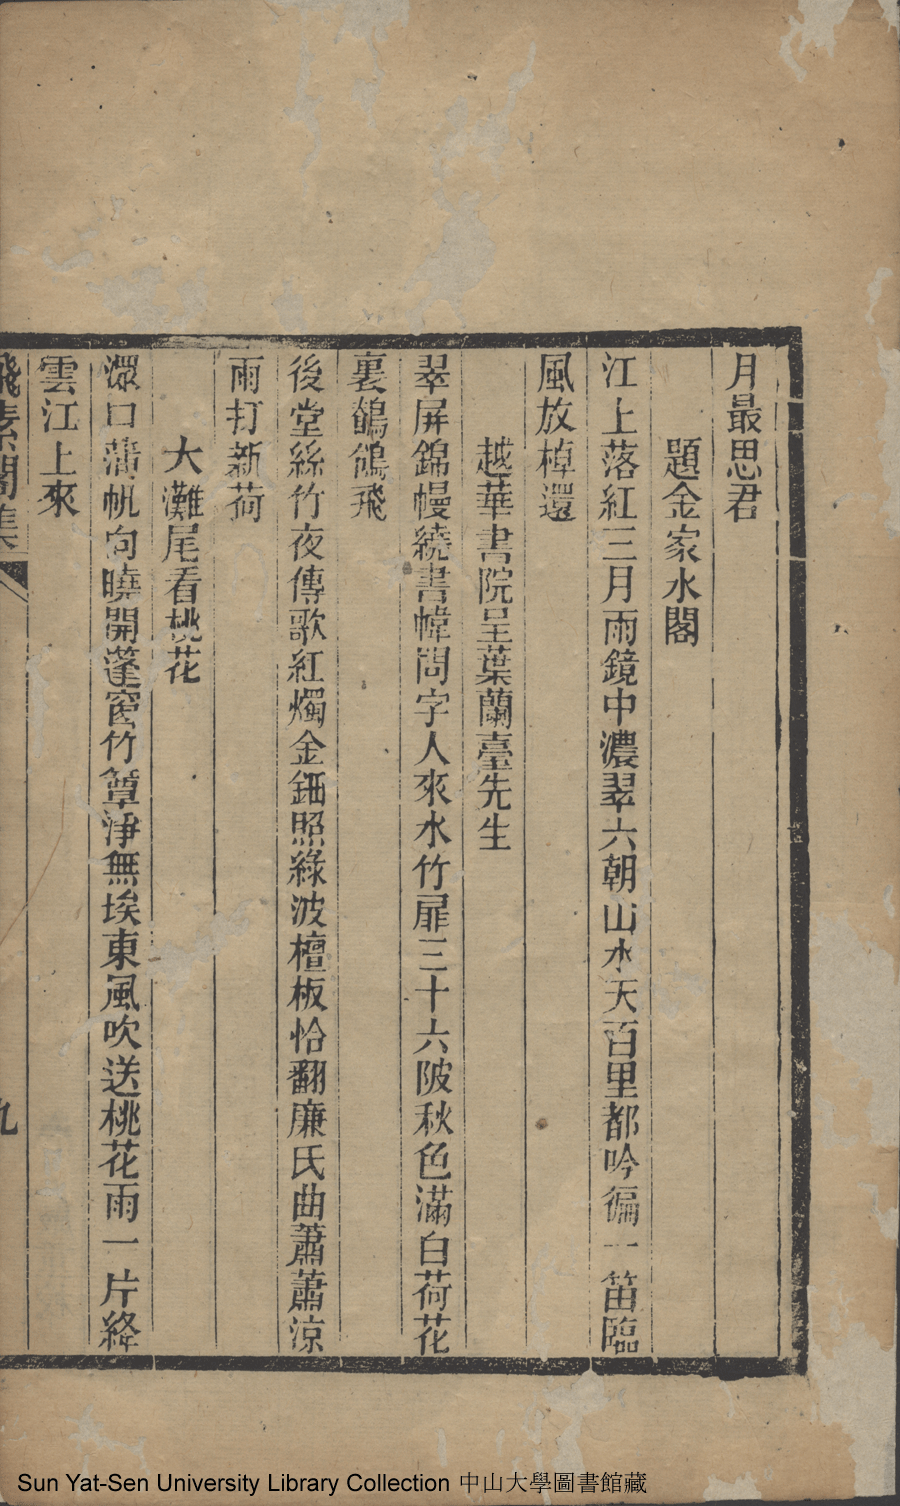 月最思君
題金家水閣
江上落紅三月雨鏡中濃翠六朝山水天百里都吟徧一笛臨
風放棹還
越華書院呈葉蘭臺先生
翠屏錦幔繞書幃問字人來水竹扉三十六陂秋色滿白荷花
裏鵁鶄飛
後堂絲竹夜傳歌紅燭金鈿照綠波檀板恰翻廉氏曲蕭蕭涼
雨打新荷
大灘尾看桃花
澴口蒲帆向曉開蓬窗竹簟淨無埃東風吹送桃花雨一片絳
雲江上來
飛素閣集
九
Sun Yat-Sen University Library Collection 中山大學圖書館藏